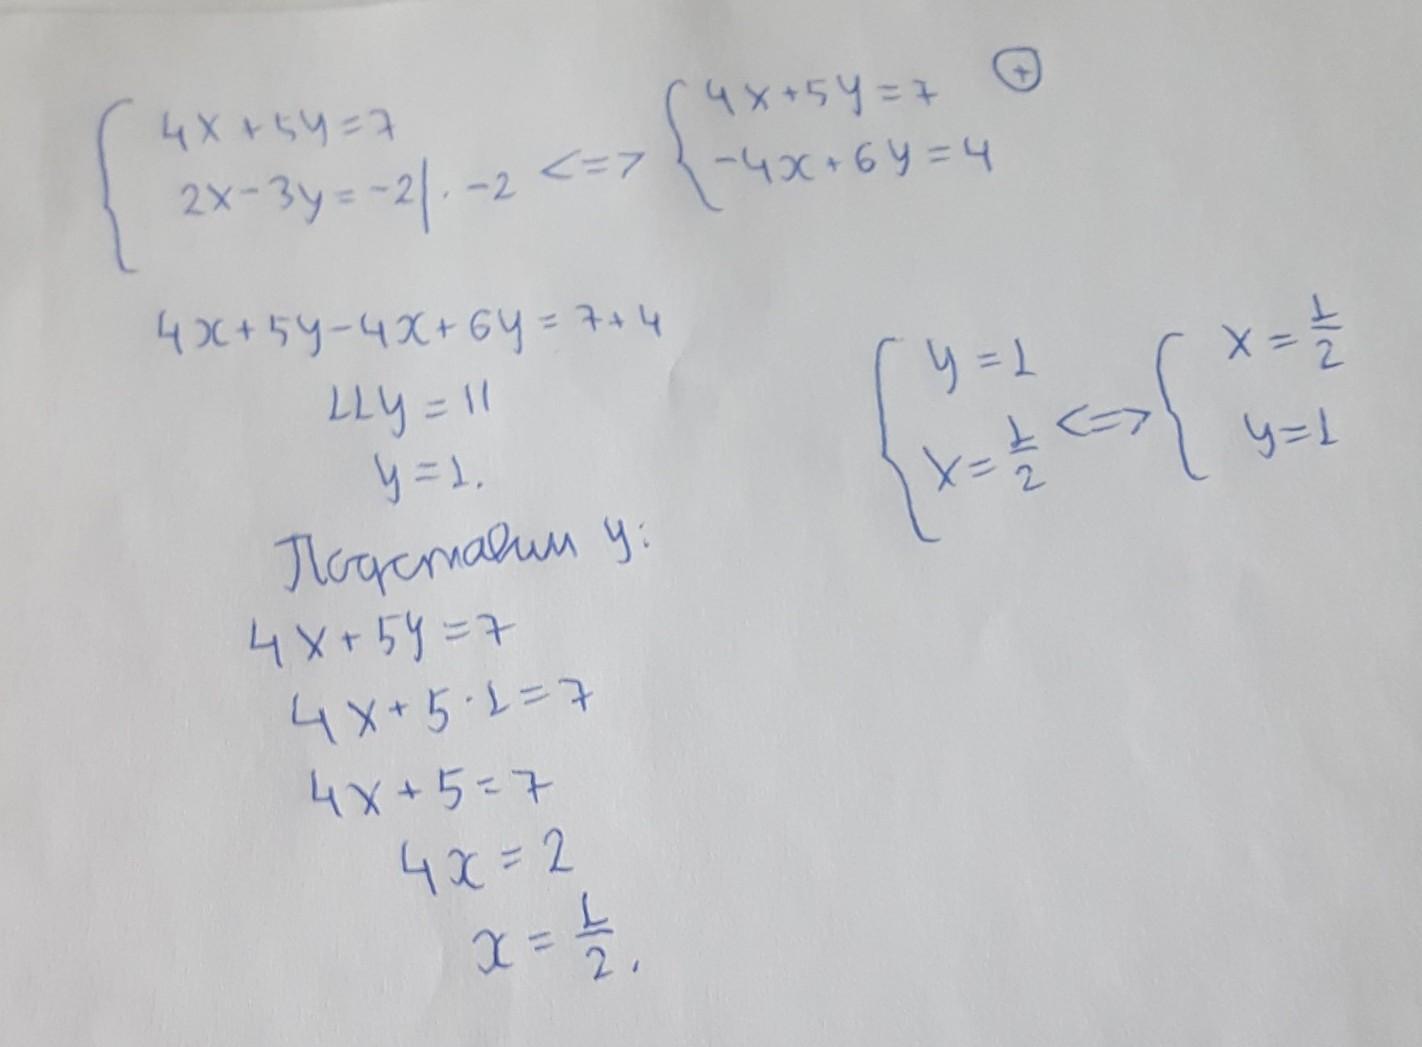 4x+5y=7 <=> 4x+5y=7 +
2x-3y=-2|·-2 -4x+6y=4
4x+5y-4x+6y=7+4
11y=11
y=1.
Подставим y:
4x+5y=7
4x+5·1=7
4x+5=7
4x=2
x=1/2.
y=1 <=> x=1/2
x=1/2 y=1